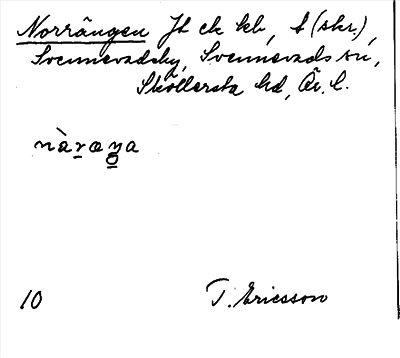 Norrängen Jt ek kb, t (skr),
Svennevadsby, Svennevads sn,
Sköllersta hd, Ör. l.
nàrœŋa
10 T. Ericsson